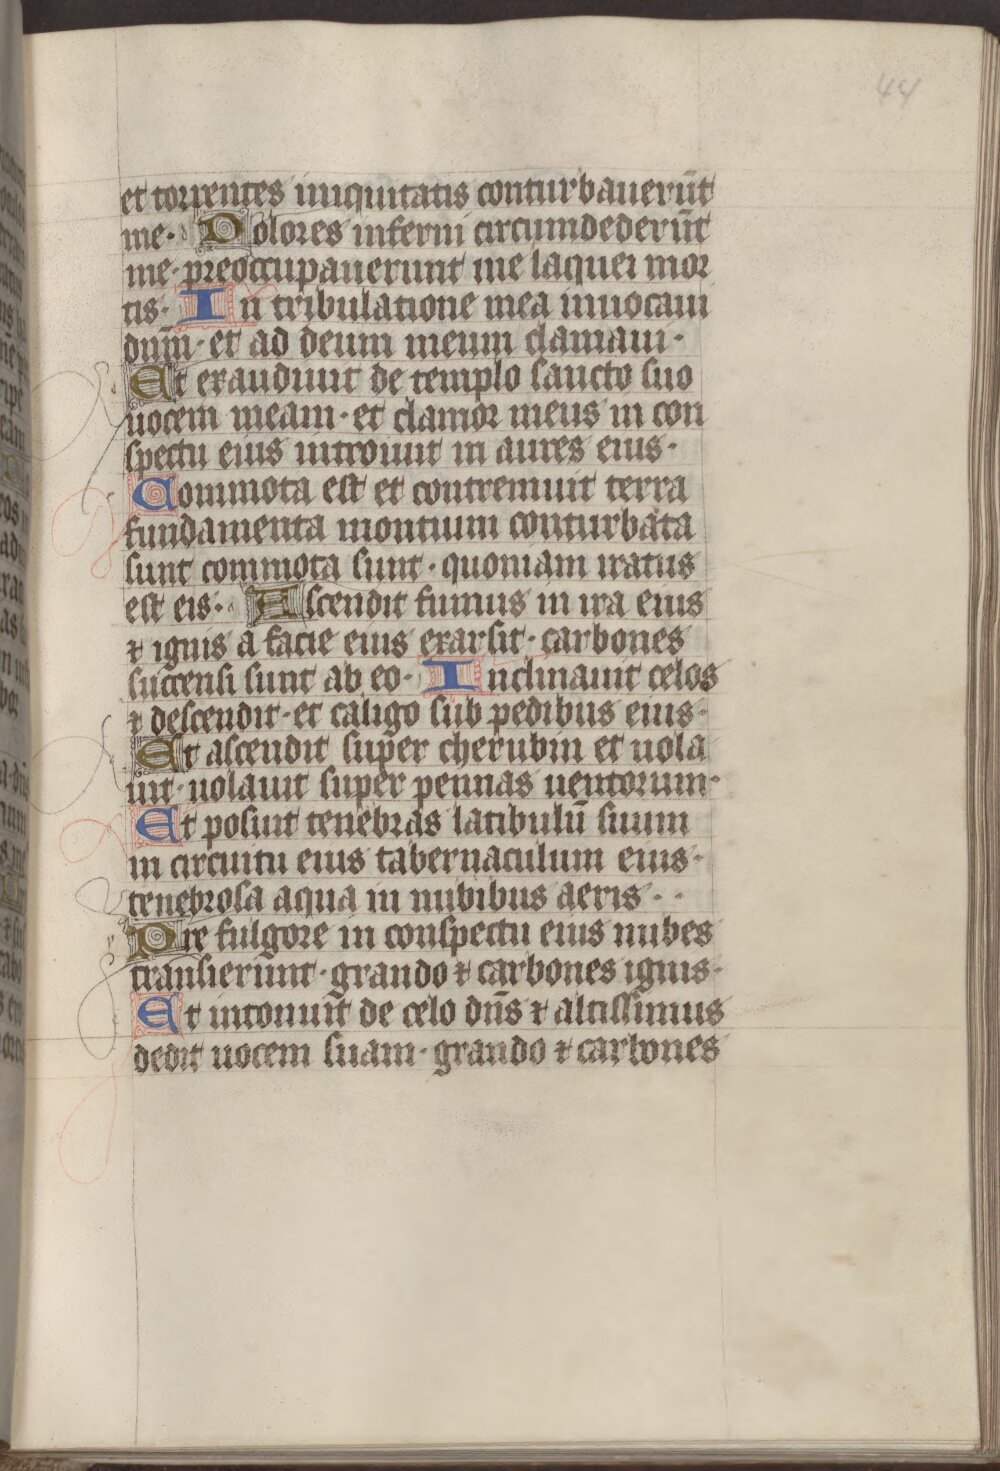 44
et torrentes iniquitatis conturbauerūt
me· Dolores inferni circumdederūt
me·preoccupauerunt me laquei mor
tis· In tribulatione mea inuocaui
dn̄m·et ad deum meum clamaui·
Et exaudiuit de templo sancto suo
uocem meam·et clamor meus in con
spectu eius introiuit in aures eius·
Commota est et contremuit terra
fundamenta montium conturbata
sunt commota sunt·quoniam iratus
est eis· Ascendit fumus in ira eius
⁊ ignis a facie eius exarsit·carbones
succensi sunt ab eo· Inclinauit celos
⁊ descendit·et caligo sub pedibus eius·
Et ascendit super cherubin et uola
uit·uolauit super pennas uentorum·
Et posuit tenebras latibulū suum
in circuitu eius tabernaculum eius·
tenebrosa aqua in nubibus aeris··
Pre fulgore in conspectu eius nubes
transierunt·grando ⁊ carbones ignis·
Et intonuit de celo dn̄s ⁊ altissimus
dedit uocem suam·grando ⁊ carbones